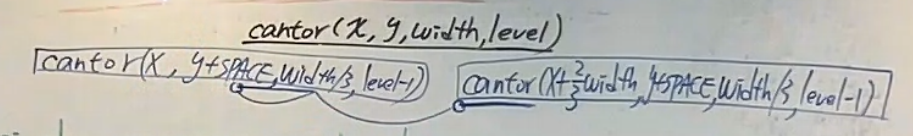 cantor(x, y, width, level)
cantor(x, y+SPACE, width/3, level-1) cantor(x+2/3width, y+SPACE, width/3, level-1)